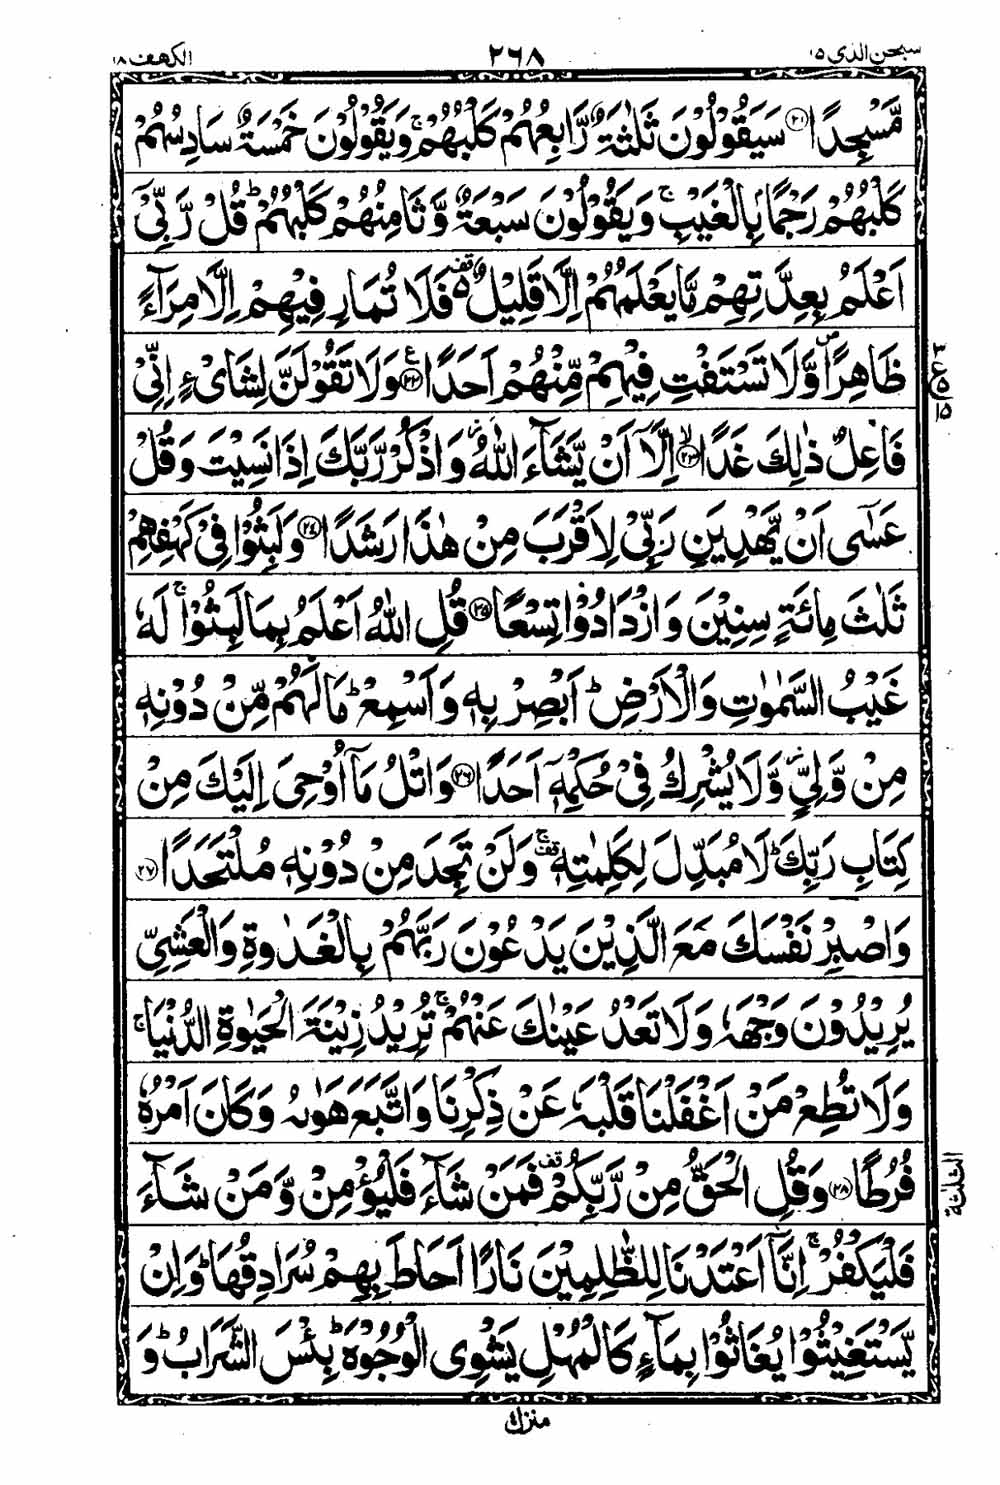 سبحن الذی ۱۵ ۲۶۸ الکهف ۱۸
مَّسْجِدًا ﴿۲۱﴾ سَيَقُوْلُوْنَ ثَلٰثَةٌ رَّابِعُهُمْ كَلْبُهُمْ ۚ وَيَقُوْلُوْنَ خَمْسَةٌ سَادِسُهُمْ
كَلْبُهُمْ رَجْمًۢا بِالْغَيْبِ ۚ وَيَقُوْلُوْنَ سَبْعَةٌ وَّثَامِنُهُمْ كَلْبُهُمْ ؕ قُلْ رَّبِّىْٓ
اَعْلَمُ بِعِدَّتِهِمْ مَّا يَعْلَمُهُمْ اِلَّا قَلِيْلٌ ۵ قف فَلَا تُمَارِ فِيْهِمْ اِلَّا مِرَآءً
ظَاهِرًا ص وَّلَا تَسْتَفْتِ فِيْهِمْ مِّنْهُمْ اَحَدًا ﴿۲۲﴾ ع وَلَا تَقُوْلَنَّ لِشَاىْءٍ اِنِّىْ
فَاعِلٌ ذٰلِكَ غَدًا ﴿۲۳﴾ لا اِلَّاۤ اَنْ يَّشَآءَ اللّٰهُ وَاذْكُرْ رَّبَّكَ اِذَا نَسِيْتَ وَقُلْ
عَسٰٓى اَنْ يَّهْدِيَنِ رَبِّىْ لِاَقْرَبَ مِنْ هٰذَا رَشَدًا ﴿۲۴﴾ وَلَبِثُوْا فِىْ كَهْفِهِمْ
ثَلٰثَ مِائَةٍ سِنِيْنَ وَازْدَادُوْا تِسْعًا ﴿۲۵﴾ قُلِ اللّٰهُ اَعْلَمُ بِمَا لَبِثُوْا ۚ لَهٗ
غَيْبُ السَّمٰوٰتِ وَالْاَرْضِ ؕ اَبْصِرْ بِهٖ وَاَسْمِعْ ؕ مَا لَهُمْ مِّنْ دُوْنِهٖ
مِنْ وَّلِىٍّ وَّلَا يُشْرِكُ فِىْ حُكْمِهٖۤ اَحَدًا ﴿۲۶﴾ وَاتْلُ مَاۤ اُوْحِىَ اِلَيْكَ مِنْ
كِتَابِ رَبِّكَ ؕ لَا مُبَدِّلَ لِكَلِمٰتِهٖ ۚ قف وَلَنْ تَجِدَ مِنْ دُوْنِهٖ مُلْتَحَدًا ﴿۲۷﴾
وَاصْبِرْ نَفْسَكَ مَعَ الَّذِيْنَ يَدْعُوْنَ رَبَّهُمْ بِالْغَدٰوةِ وَالْعَشِىِّ
يُرِيْدُوْنَ وَجْهَهٗ وَلَا تَعْدُ عَيْنٰكَ عَنْهُمْ ۚ تُرِيْدُ زِيْنَةَ الْحَيٰوةِ الدُّنْيَا ۚ
وَلَا تُطِعْ مَنْ اَغْفَلْنَا قَلْبَهٗ عَنْ ذِكْرِنَا وَاتَّبَعَ هَوٰىهُ وَكَانَ اَمْرُهٗ
فُرُطًا ﴿۲۸﴾ وَقُلِ الْحَقُّ مِنْ رَّبِّكُمْ قف فَمَنْ شَآءَ فَلْيُؤْمِنْ وَّمَنْ شَآءَ
فَلْيَكْفُرْ ۚ اِنَّاۤ اَعْتَدْنَا لِلظّٰلِمِيْنَ نَارًا اَحَاطَ بِهِمْ سُرَادِقُهَا ؕ وَاِنْ
يَّسْتَغِيْثُوْا يُغَاثُوْا بِمَآءٍ كَالْمُهْلِ يَشْوِى الْوُجُوْهَ ؕ بِئْسَ الشَّرَابُ ؕ وَ
۳
ع ۵
۱۵
الثلثة